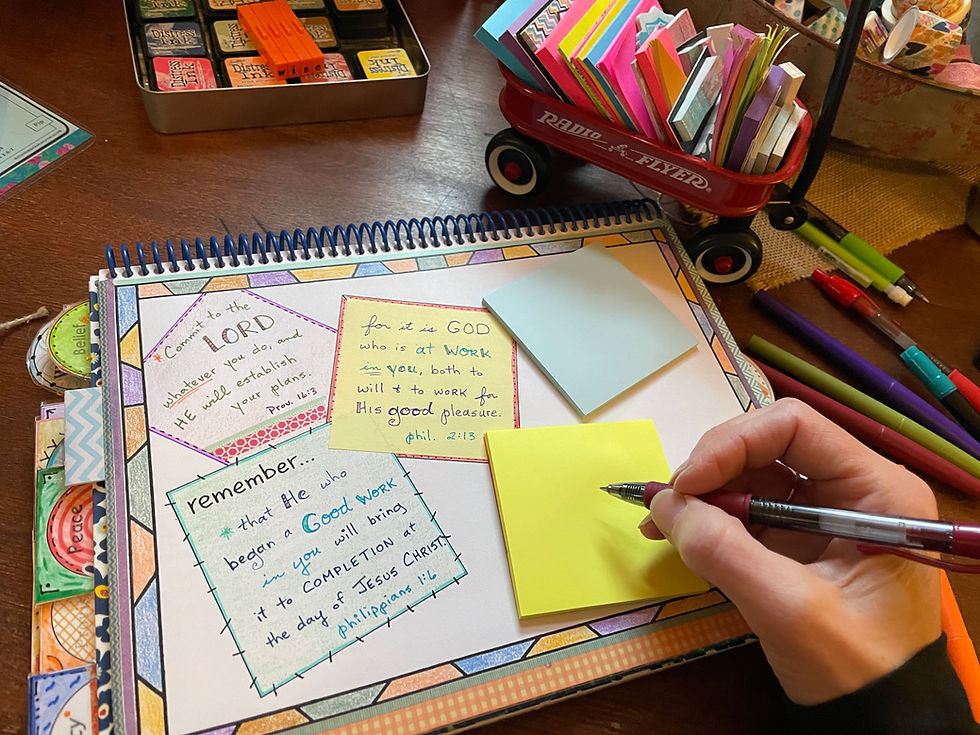 Distress Ink
Distress Ink
Distress Ink
Distress Ink
Distress Ink
wise
RADIO FLYER
Belief
Peace
Commit to the
LORD
whatever you do, and
HE will establish
your plans.
Prov. 16:3
for it is GOD
who is at WORK
in you, both to
will & to work for
His good pleasure.
phil. 2:13
remember...
that He who
began a Good WORK
in you will bring
it to COMPLETION at
the day of JESUS CHRIST.
philippians 1:6